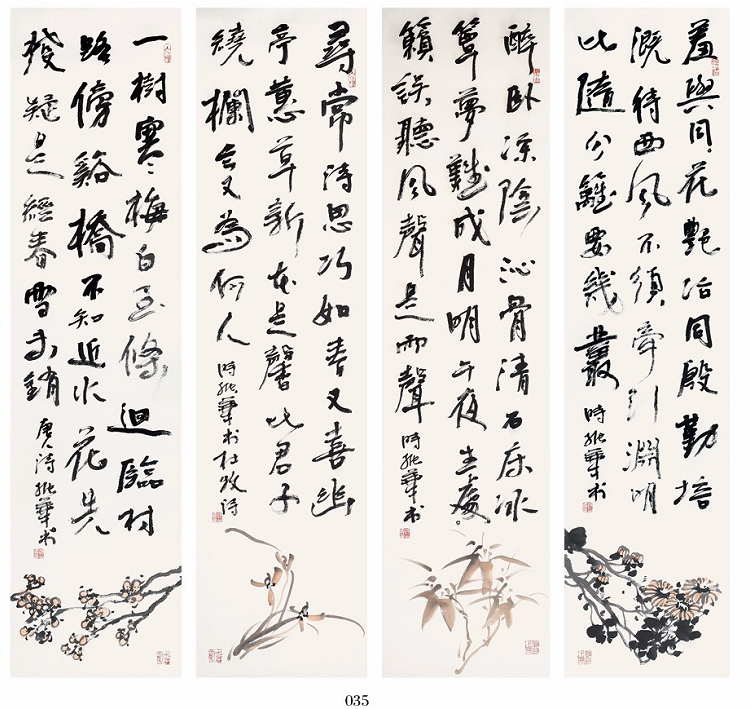 一樹寒梅白玉條迴臨村
路傍谿橋不知近水花先
發疑是經春雪未銷
唐詩
尋常詩思巧如春又喜幽
亭蕙草新本是馨比君子
繞欄今又為何人
書杜牧詩
醉卧涼陰沁骨清石床冰
簟夢難成月明午夜生虛
籟誤聽風聲是雨聲
羞與同花艷冶同殷勤培
溉待西風不須牽引淵明
比隨分籬要幾叢
035